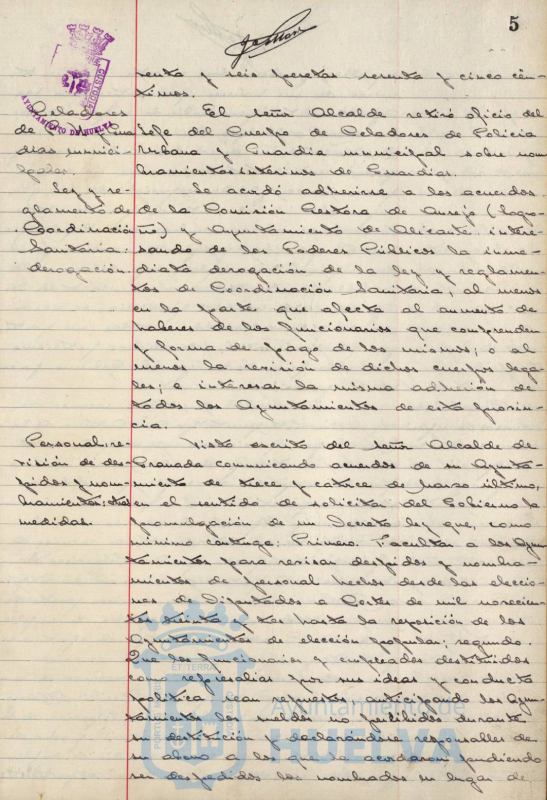 5
AYUNTAMIENTO DE HUELVA
CUSTODIA
renta y seis pesetas sesenta y cinco cén-
timos.
Celadores
de
Guar
dias munici-
pales.
El señor Alcalde retiró oficio del
Jefe del Cuerpo de Celadores de Policía
Urbana y Guardia municipal sobre nom
bramientos interinos de Guardias.
Ley y re-
glamento de
Coordinación
Sanitaria:
derogación.
Se acordó adherirse a los acuerdos
de la Comisión Gestora de Ausejo (Logro-
ño) y Ayuntamiento de Alicante intere-
sando de los Poderes Públicos la inme-
diata derogación de la ley y reglamen-
tos de Coordinación Sanitaria, al menos
en la parte que afecta al aumento de
haberes de los funcionarios que comprenden
y forma de pago de los mismos; o al
menos la revisión de dichos cuerpos lega-
les; e interesar la misma adhesión de
todos los Ayuntamientos de esta provin-
cia.
Personal: re-
visión de des-
pidos y nom-
bramientos; otras
medidas.
Visto escrito del señor Alcalde de
Granada comunicando acuerdos de su Ayunta-
miento de trece y catorce de Marzo último,
en el sentido de solicitar del Gobierno la
promulgación de un Decreto ley que, como
mínimo contenga: Primero. Facultar a los Ayun
tamientos para revisar despidos y nombra-
mientos de personal hechos desde las eleccio-
nes de Diputados a Cortes de mil novecien-
tos treinta y tres hasta la reposición de los
Ayuntamientos de elección popular; segundo.
Que los funcionarios y empleados destituidos
como represalias por sus ideas y conducta
política sean repuestos anticipando los Ayun-
tamientos los sueldos no percibidos durante
su destitución y declarándose responsables de
su abono a los que la acordaron pudiendo
ser despedidos los nombrados en lugar de
Ayuntamiento de
HUELVA